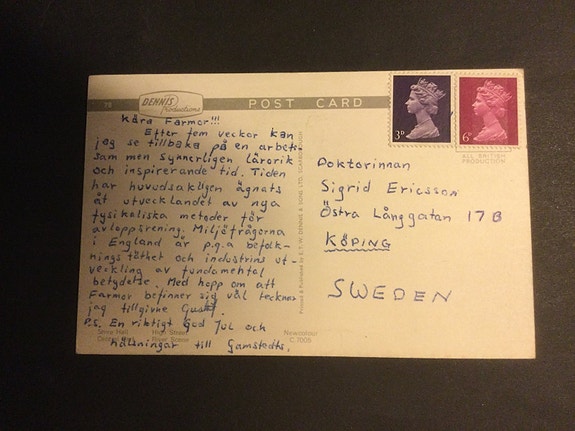 38
DENNIS
Productions
POST CARD
3D
6D
ALL BRITISH
PRODUCTION
Kära Farmor!!!
Efter fem veckor kan
jag se tillbaka på en arbet-
sam men synnerligen lärorik
och inspirerande tid. Tiden
har huvudsakligen ägnats
åt utvecklandet av nya
fysikaliska metoder för
avloppsrening. Miljöfrågorna
i England är p.g.a befolk-
nings täthet och industrins ut-
veckling av fundamental
betydelse. Med hopp om att
Farmor befinner sig väl tecknar
jag tillgivne Gustaf.
P.S. En riktigt God Jul och
hälsningar till Gamstedts.
Doktorinnan
Sigrid Ericsson
Östra Långgatan 17 B
KÖPING
SWEDEN
Printed & Published by E.T.W. DENNIS & SONS LTD., SCARBOROUGH
High Street
River Scene
Newcolour